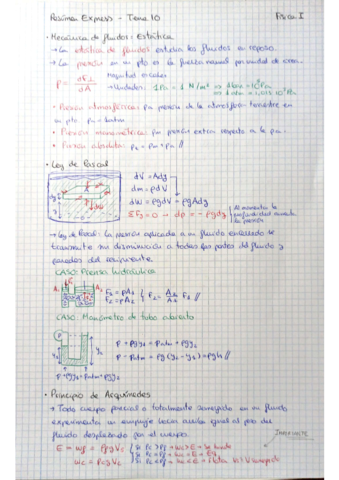 Resumen Express - Tema 10    Física I
• Mecánica de fluidos: Estática
→ La estática de fluidos estudia los fluidos en reposo.
→ La presión en un pto es la fuerza normal por unidad de área.
P = dF⊥/dA
Magnitud escalar
→ Unidades: 1 Pa = 1 N/m² ⇒ 1 bar = 10⁵ Pa
⇒ 1 atm = 1,013·10⁵ Pa
• Presión atmosférica: Pa presión de la atmósfera terrestre en
un pto Pa = 1 atm
• Presión manométrica: Pm presión extra respecto a la Pa.
• Presión absoluta: P = Pm + Pa //
• Ley de Pascal
dV = A dy
dm = ρdV
dw = ρgdV = ρgAdy
ΣFy = 0 → dp = -ρgdy
Al aumentar la
profundidad aumenta
la presión
→ Ley de Pascal: La presión aplicada a un fluido encerrado se
transmite sin disminución a todas las partes del fluido y
paredes del recipiente.
CASO: Prensa hidráulica
F₁ = pA₁
F₂ = pA₂
F₂ = A₂/A₁ F₁ //
CASO: Manómetro de tubo abierto
P + ρgy₁ = Patm + ρgy₂
P - Patm = ρg(y₂ - y₁) = ρgh //
P + ρgy₁ = Patm + ρgy₂
• Principio de Arquímedes
→ Todo cuerpo parcial o totalmente sumergido en un fluido
experimenta un empuje hacia arriba igual al peso del
fluido desplazado por el cuerpo.
IMPORTANTE